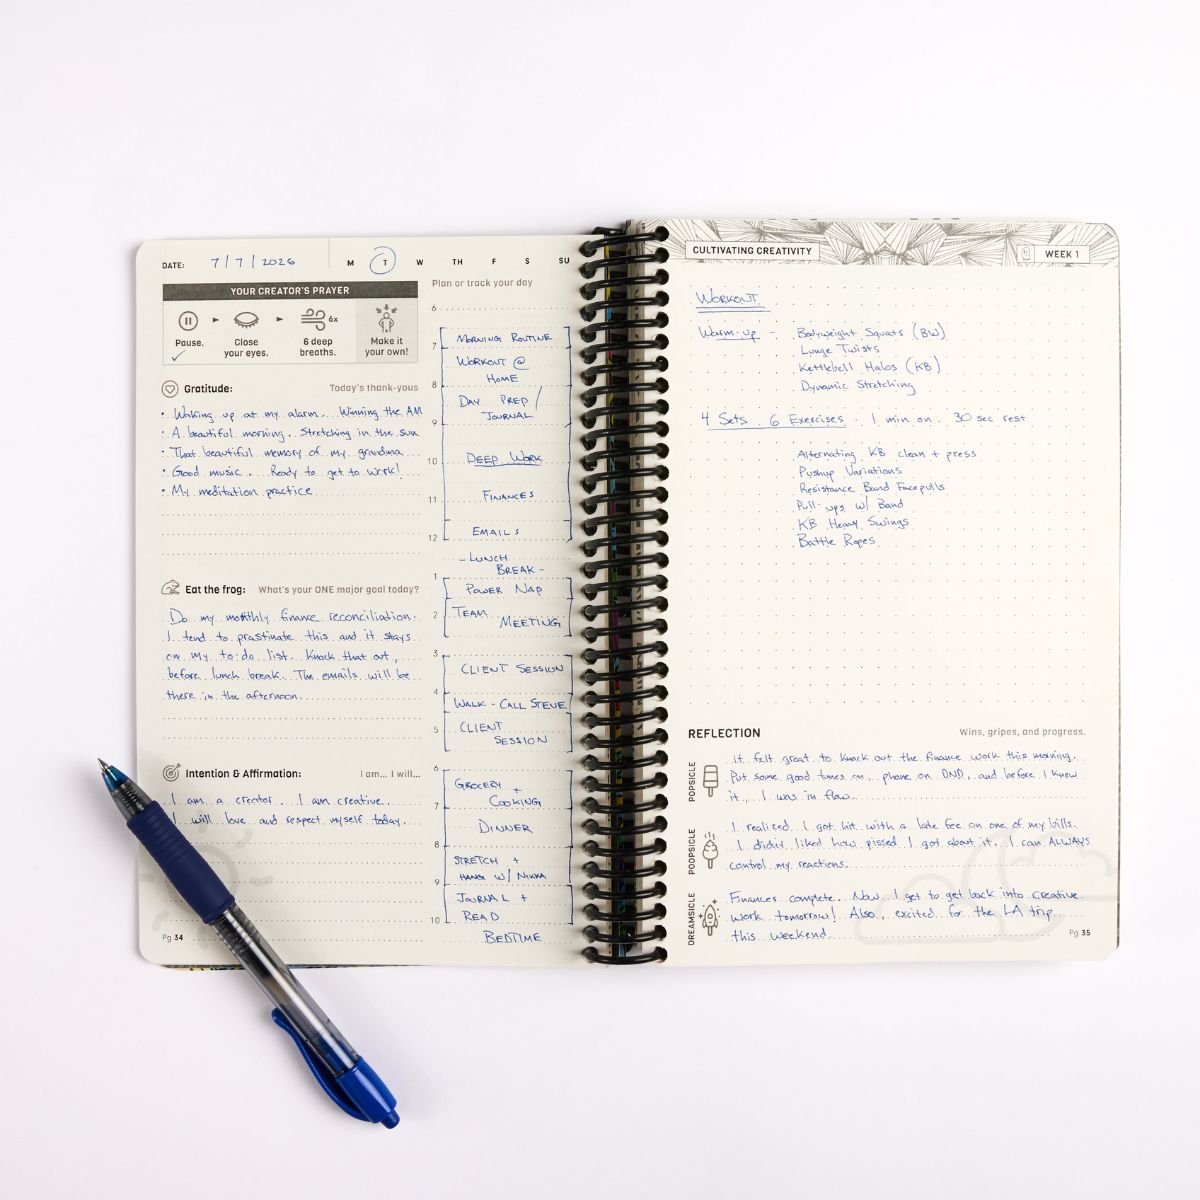 DATE: 7/7/2026 M T W TH F S SU
YOUR CREATOR'S PRAYER
Pause.
Close your eyes.
6x
6 deep breaths.
Make it your own!
Gratitude: Today's thank-yous
• Waking up at my alarm... Winning the AM
• A beautiful morning. Stretching in the sun.
• That beautiful memory of my grandma...
• Good music... Ready to get to work!
• My meditation practice
Eat the frog: What's your ONE major goal today?
Do my monthly finance reconciliation.
I tend to prastinate this and it stays
on my to-do list. Knock that out,
before lunch break. The emails will be
there in the afternoon.
Intention & Affirmation: I am... I will...
I am a creator... I am creative.
I will love and respect myself today.
Pg 34
Plan or track your day
6
MORNING ROUTINE
7
WORKOUT @
HOME
8
DAY PREP /
JOURNAL
9
DEEP WORK
10
FINANCES
11
EMAILS
12
- LUNCH
BREAK -
1
POWER NAP
2 TEAM
MEETING
3
CLIENT SESSION
4
WALK - CALL STEVE
5 CLIENT
SESSION
6
GROCERY +
COOKING
7
DINNER
8
STRETCH +
HANG W/ NIKKA
9
JOURNAL +
READ
10
BEDTIME
CULTIVATING CREATIVITY
WEEK 1
WORKOUT
Warm-up - Bodyweight Squats (BW)
Lunge Twists
Kettlebell Halos (KB)
Dynamic Stretching
4 Sets 6 Exercises - 1 min on. 30 sec rest
Alternating KB clean + press
Pushup Variations
Resistance Band Facepulls
Pull-ups w/ Band
KB Heavy Swings
Battle Ropes
REFLECTION Wins, gripes, and progress.
POPSICLE
It felt great to knock out the finance work this morning...
Put some good tunes on.. phone on DND, and before I knew
it, I was in flow.
POOPSICLE
I realized I got hit with a late fee on one of my bills.
I didn't liked how pissed I got about it.. I can ALWAYS
control my reactions.
DREAMSICLE
Finances complete. Now I get to get back into creative
work tomorrow! Also, excited for the LA trip
this weekend.
Pg 35